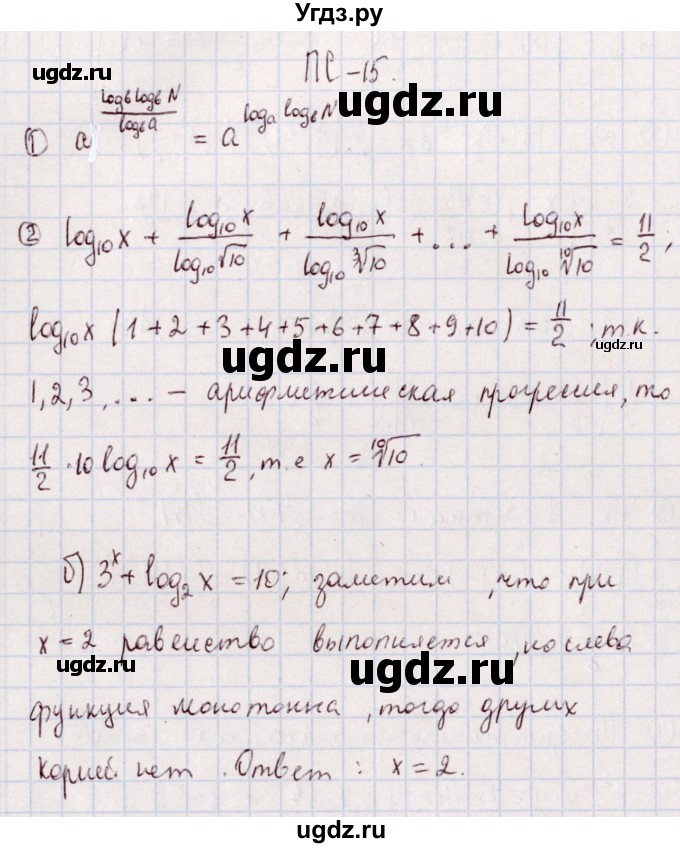 Угдз.ру
ПС-15.
ugdz.ru ugdz.ru
① a^((log_b log_b N)/(log_b a)) = a^(log_a log_b N)
② log₁₀x + log₁₀x/log₁₀√10 + log₁₀x/log₁₀∛10 + ... + log₁₀x/log₁₀¹⁰√10 = 11/2;
ugdz.ru
log₁₀x (1+2+3+4+5+6+7+8+9+10) = 11/2; т.к.
ugdz.ru ugdz.ru
1, 2, 3, ... - арифметическая прогрессия, то
11/2 · 10 log₁₀x = 11/2, т.е x = ¹⁰√10.
ugdz.ru
б) 3ˣ + log₂x = 10; заметим, что при
x = 2 равенство выполняется, но слева
ugdz.ru ugdz.ru
функция монотонна, тогда других
корней нет. Ответ: x = 2.
ugdz.ru ugdz.ru
ugdz.ru